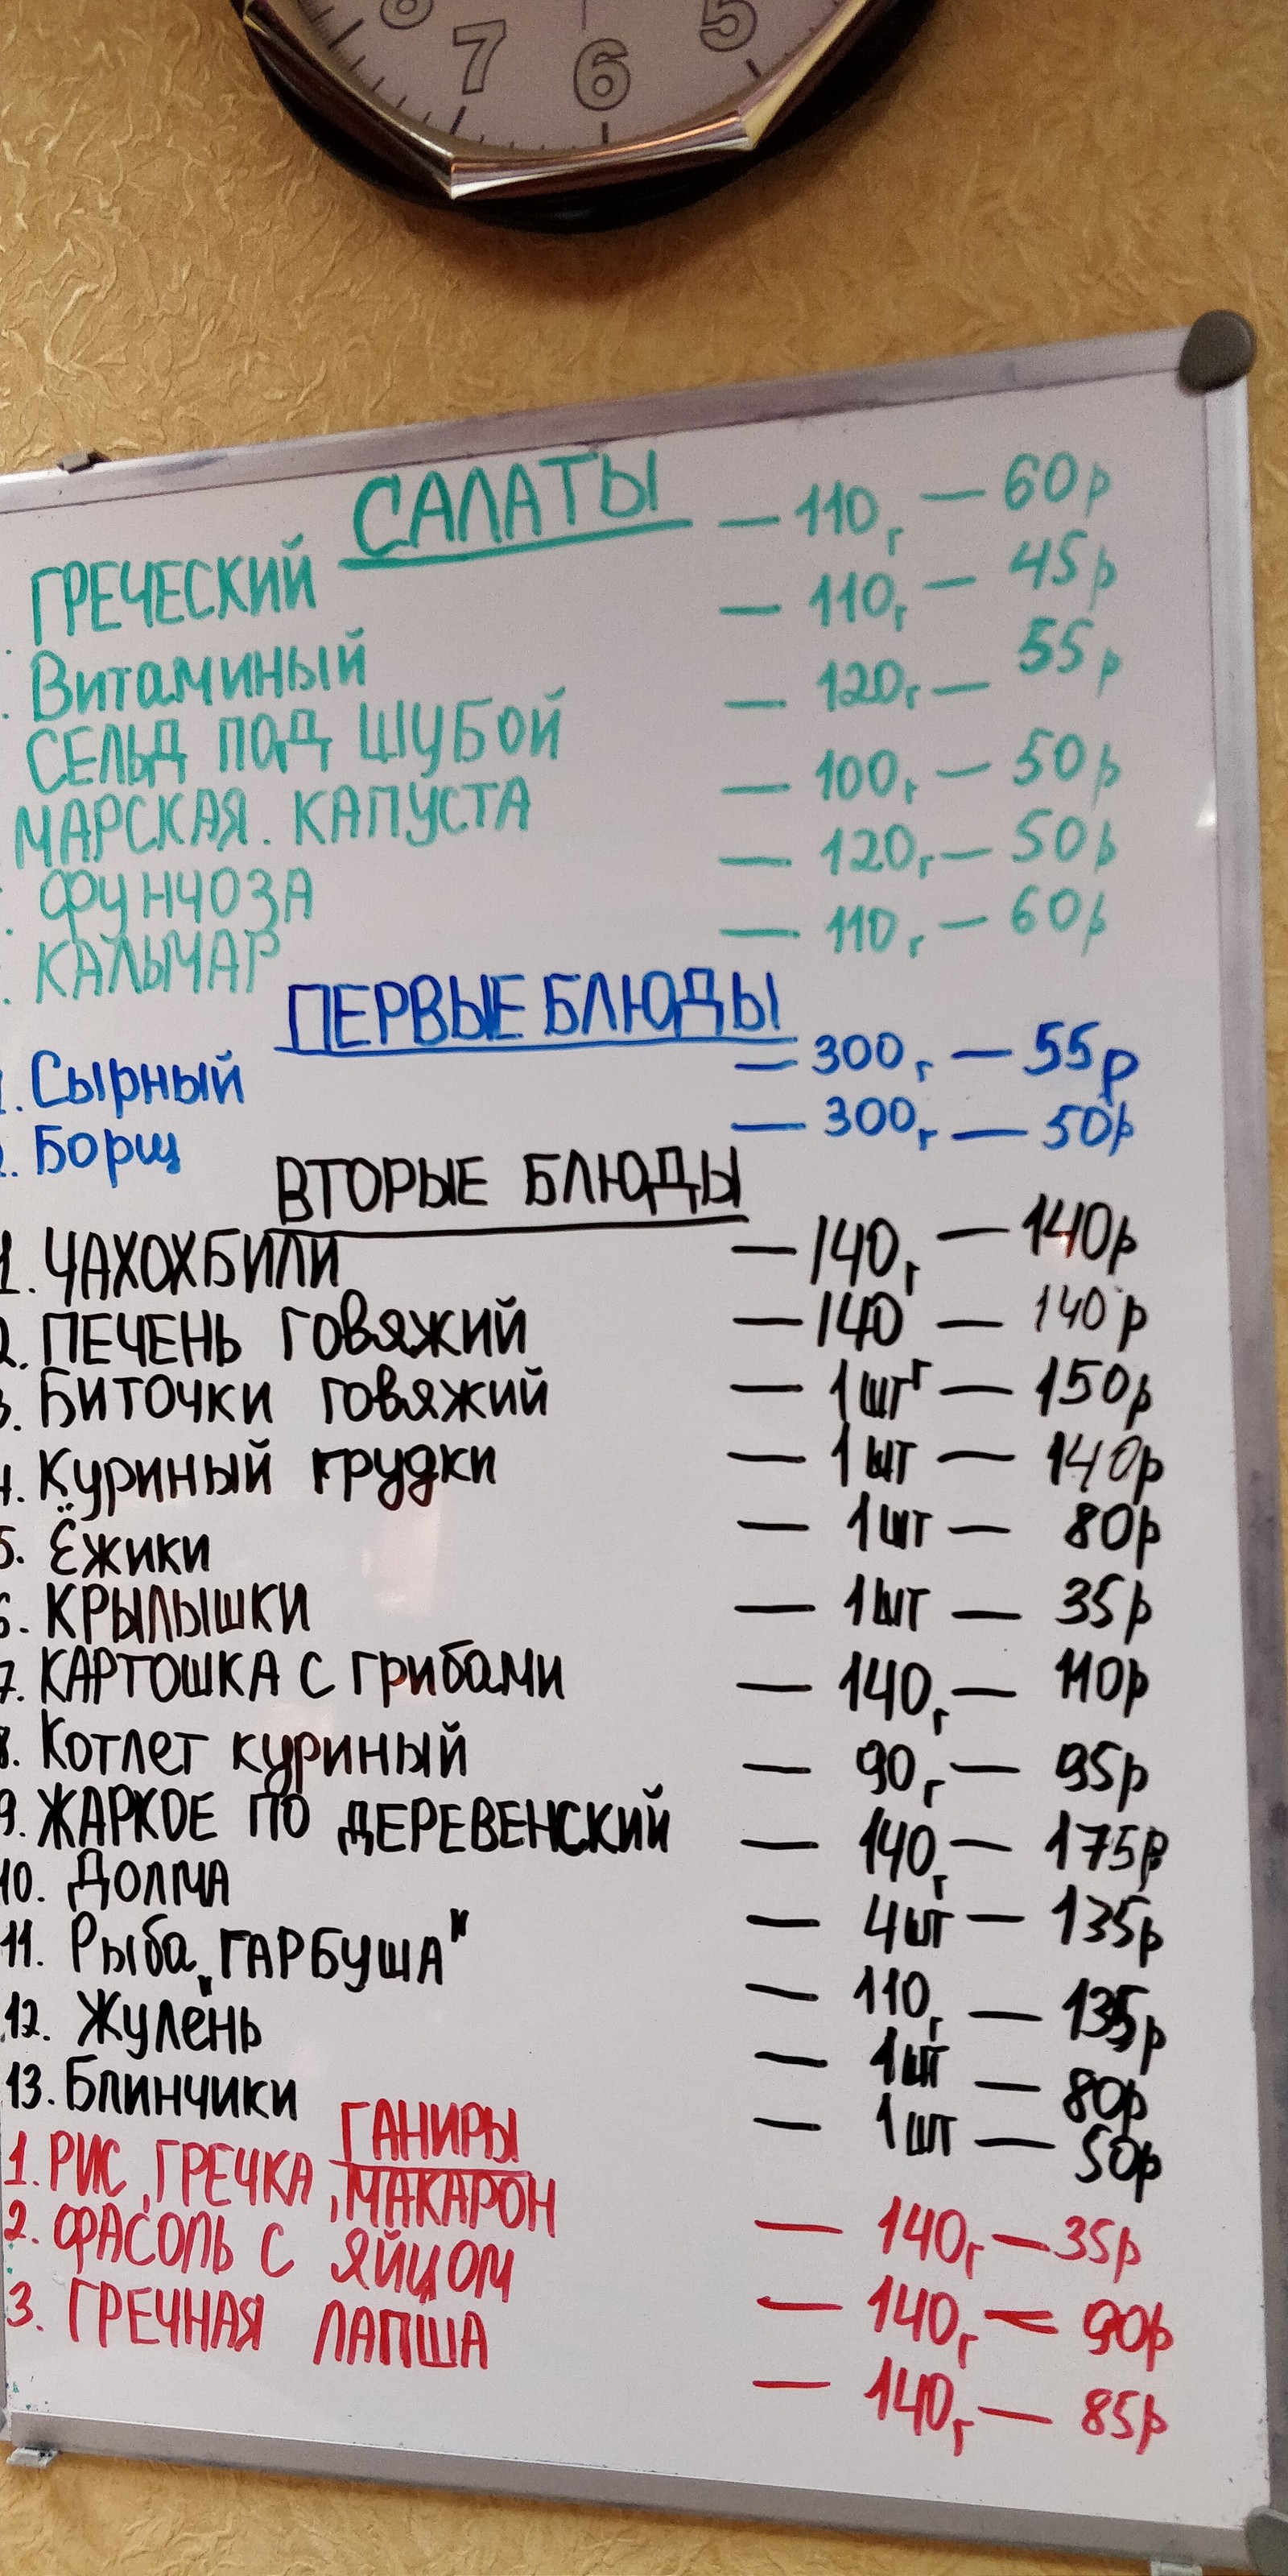 8 7 6 5
САЛАТЫ
ГРЕЧЕСКИЙ — 110г — 60р
Витаминый — 110г — 45р
СЕЛЬД ПОД ШУБОЙ — 120г — 55р
МАРСКАЯ. КАПУСТА — 100г — 50р
ФУНЧОЗА — 120г — 50р
КАЛЬЧАР — 110г — 60р
ПЕРВЫЕ БЛЮДЫ
1. Сырный — 300г — 55р
2. Борщ — 300г — 50р
ВТОРЫЕ БЛЮДЫ
1. ЧАХОХБИЛИ — 140г — 140р
2. ПЕЧЕНЬ говяжий — 140г — 140р
3. Биточки говяжий — 1шт — 150р
4. Куриный грудки — 1шт — 140р
5. Ёжики — 1шт — 80р
6. КРЫЛЫШКИ — 1шт — 35р
7. КАРТОШКА С грибами — 140г — 110р
8. Котлет куриный — 90г — 95р
9. ЖАРКОЕ ПО ДЕРЕВЕНСКИЙ — 140г — 175р
10. Долма — 4шт — 135р
11. Рыба „ГАРБУША" — 110г — 135р
12. Жулень — 1шт — 80р
13. Блинчики — 1шт — 50р
ГАНИРЫ
1. РИС, ГРЕЧКА, МАКАРОН — 140г — 35р
2. ФАСОЛЬ С ЯЙЦОМ — 140г — 90р
3. ГРЕЧНАЯ ЛАПША — 140г — 85р